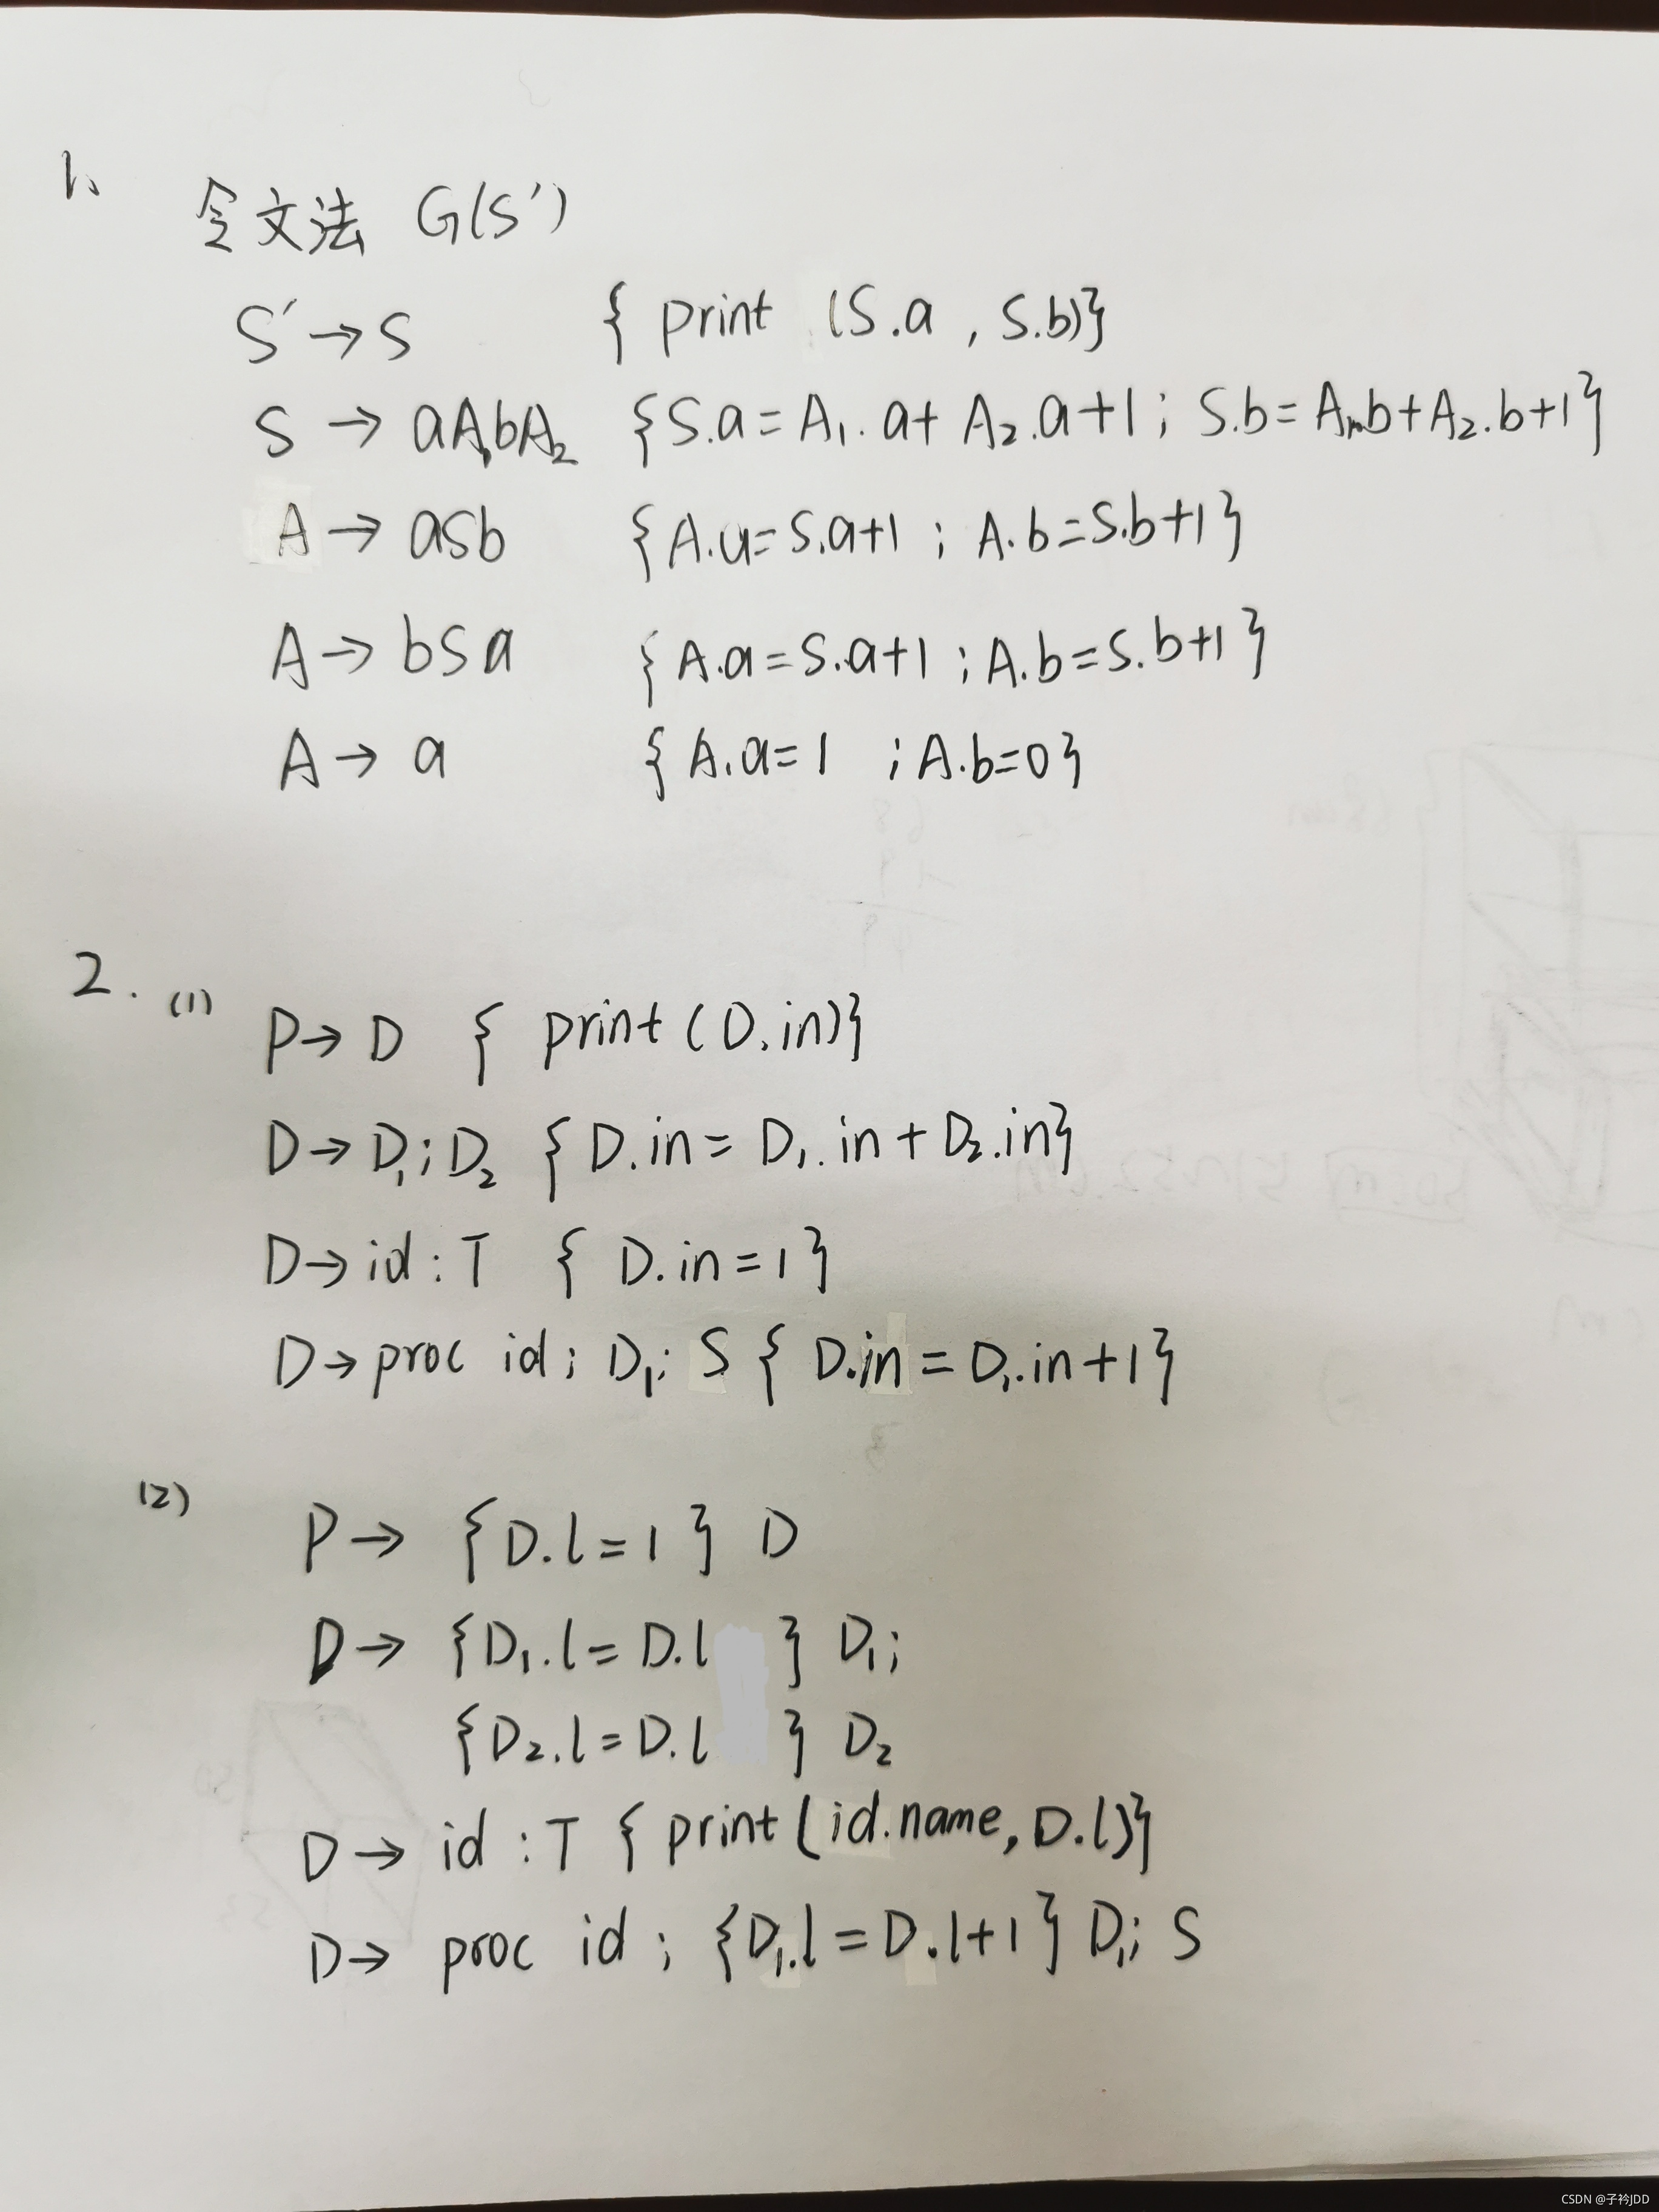 1、
令文法 G(S')
S' → S { print (S.a , S.b)}
S → aA₁bA₂ {S.a = A₁.a + A₂.a+1 ; S.b = A₁.b+A₂.b+1}
A → aSb {A.a=S.a+1 ; A.b=S.b+1}
A → bSa {A.a=S.a+1 ; A.b=S.b+1}
A → a {A.a=1 ; A.b=0}
2. (1) P → D { print (D.in)}
D → D₁; D₂ {D.in = D₁.in + D₂.in}
D → id : T { D.in = 1}
D → proc id ; D₁; S { D.in = D₁.in+1}
(2) P → {D.l=1} D
D → {D₁.l = D.l } D₁;
{D₂.l = D.l } D₂
D → id : T { print (id.name, D.l)}
D → proc id ; {D₁.l = D.l+1} D₁; S
CSDN @子衿JDD